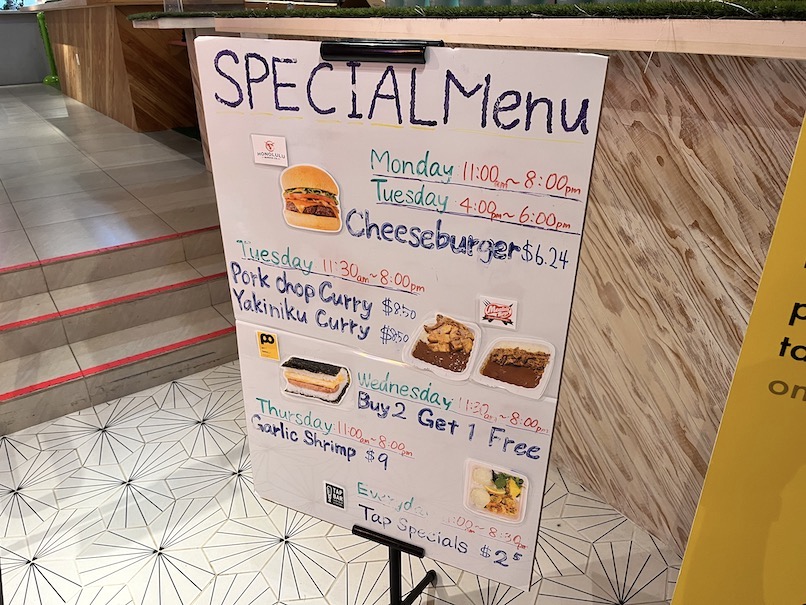 SPECIAL Menu
HONOLULU
Monday 11:00am~8:00pm
Tuesday 4:00pm~6:00pm
Cheeseburger $6.24
Tuesday 11:30am~8:00pm
Pork chop Curry $8.50
Yakiniku Curry $8.50
Wednesday 11:30am~8:00pm
Buy 2 Get 1 Free
Thursday 11:00am~8:00pm
Garlic Shrimp $9
TAP
BAR
Everyday :00~8:30pm
Tap Specials $2.5
p
ta
on